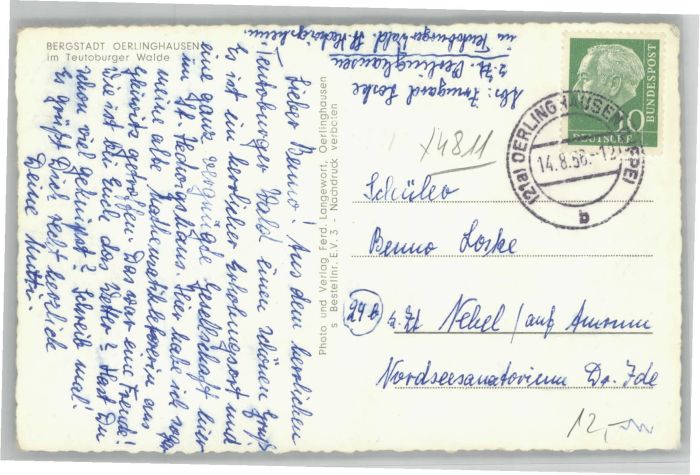 BERGSTADT OERLINGHAUSEN
im Teutoburger Walde
Lieber Benno! Aus dem herrlichen
Teutoburger Wald einen schönen Gruß
Es ist ein herrlicher Erholungsort und
eine ganz vergnügte Gesellschaft hier
im St. Hedwigshaus. Hier habe ich sogar
meine alte Mathematiklehrerin aus
Gleiwitz getroffen. Das war eine Freude!
Wie ist bei Euch das Wetter? Hast Du
schon viel geknipst? Schreib mal!
Es grüßt Dich sehr herzlich
Deine Mutti.
Photo und Verlag Ferd. Langewort, Oerlinghausen
s Bestellnr. E.V. 3 - Nachdruck verboten
Abs: Irmgard Loske
z. Zt. Oerlinghausen
im Teutoburger Wald. St. Hedwigsheim.
DEUTSCHE
BUNDESPOST
10
(21a) OERLINGHAUSEN (LIPPE)
14.8.56.-12
b
X4811
Schüler
Benno Loske
24b z. Zt Nebel / auf Amrum
Nordseesanatorium Dr. Ide
12,-